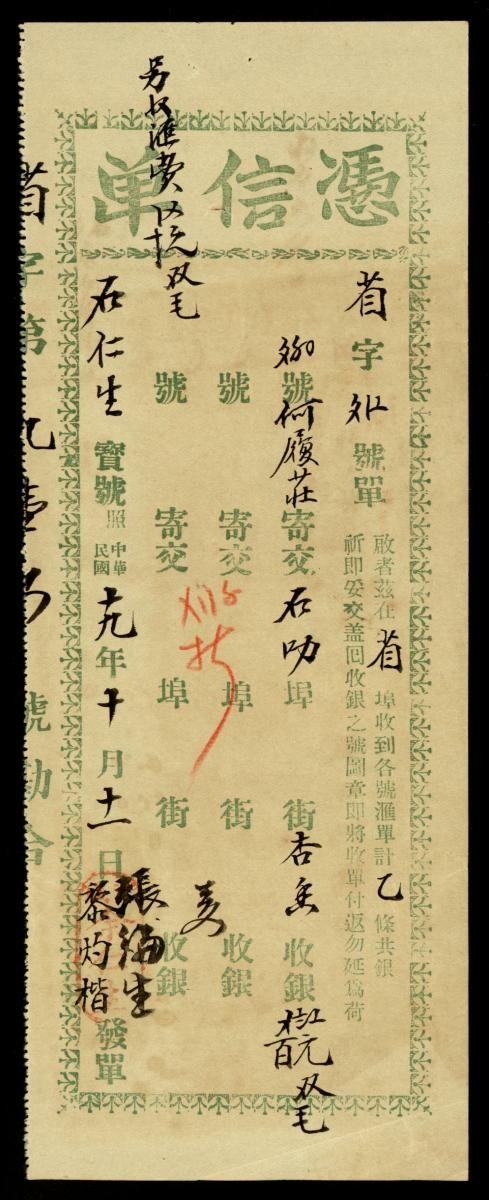 憑信单
省字 號單
敬者茲在省埠收到各號滙單計乙條共銀
祈即妥交盖回收銀之號圖章即將收單付返勿延爲荷
號何履莊寄交石叻埠 街杏 收銀 元双毛
號 寄交 埠 街 收銀
號 寄交 埠 街 收銀
石仁生寶號照中華民國十九年十月十一日 發單
張 生
黎灼楷
另收滙費 双毛
省字第 號勘合